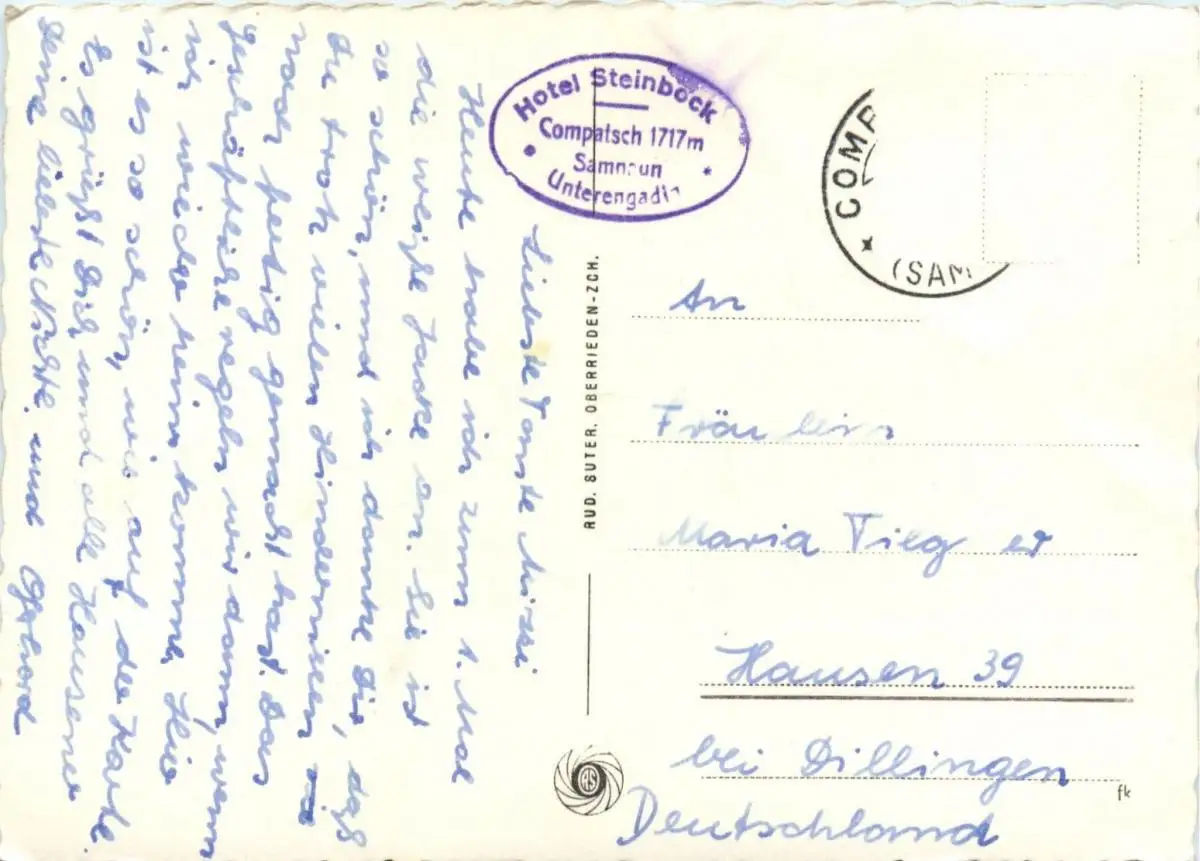 Hotel Steinbock
Compatsch 1717m
Samnaun
Unterengadin
* COMP
(SAM
Liebste Tante
Heute habe ich zum 1. Mal
die weiße Jacke an. Sie ist
so schön, und ich danke Dir, daß
Du trotz vielen Hindernissen sie
noch fertig gemacht hast. Das
geschäftliche regeln wir dann, wenn
ich wieder heim komme. Hier
ist es so schön, wie auf der Karte.
Es grüßt Dich und alle Hausener
Deine liebste Nichte und
RUD. SUTER, OBERRIEDEN-ZCH.
RS
An
Fräulein
Maria Tieg er
Hausen 39
bei Dillingen
Deutschland
fk